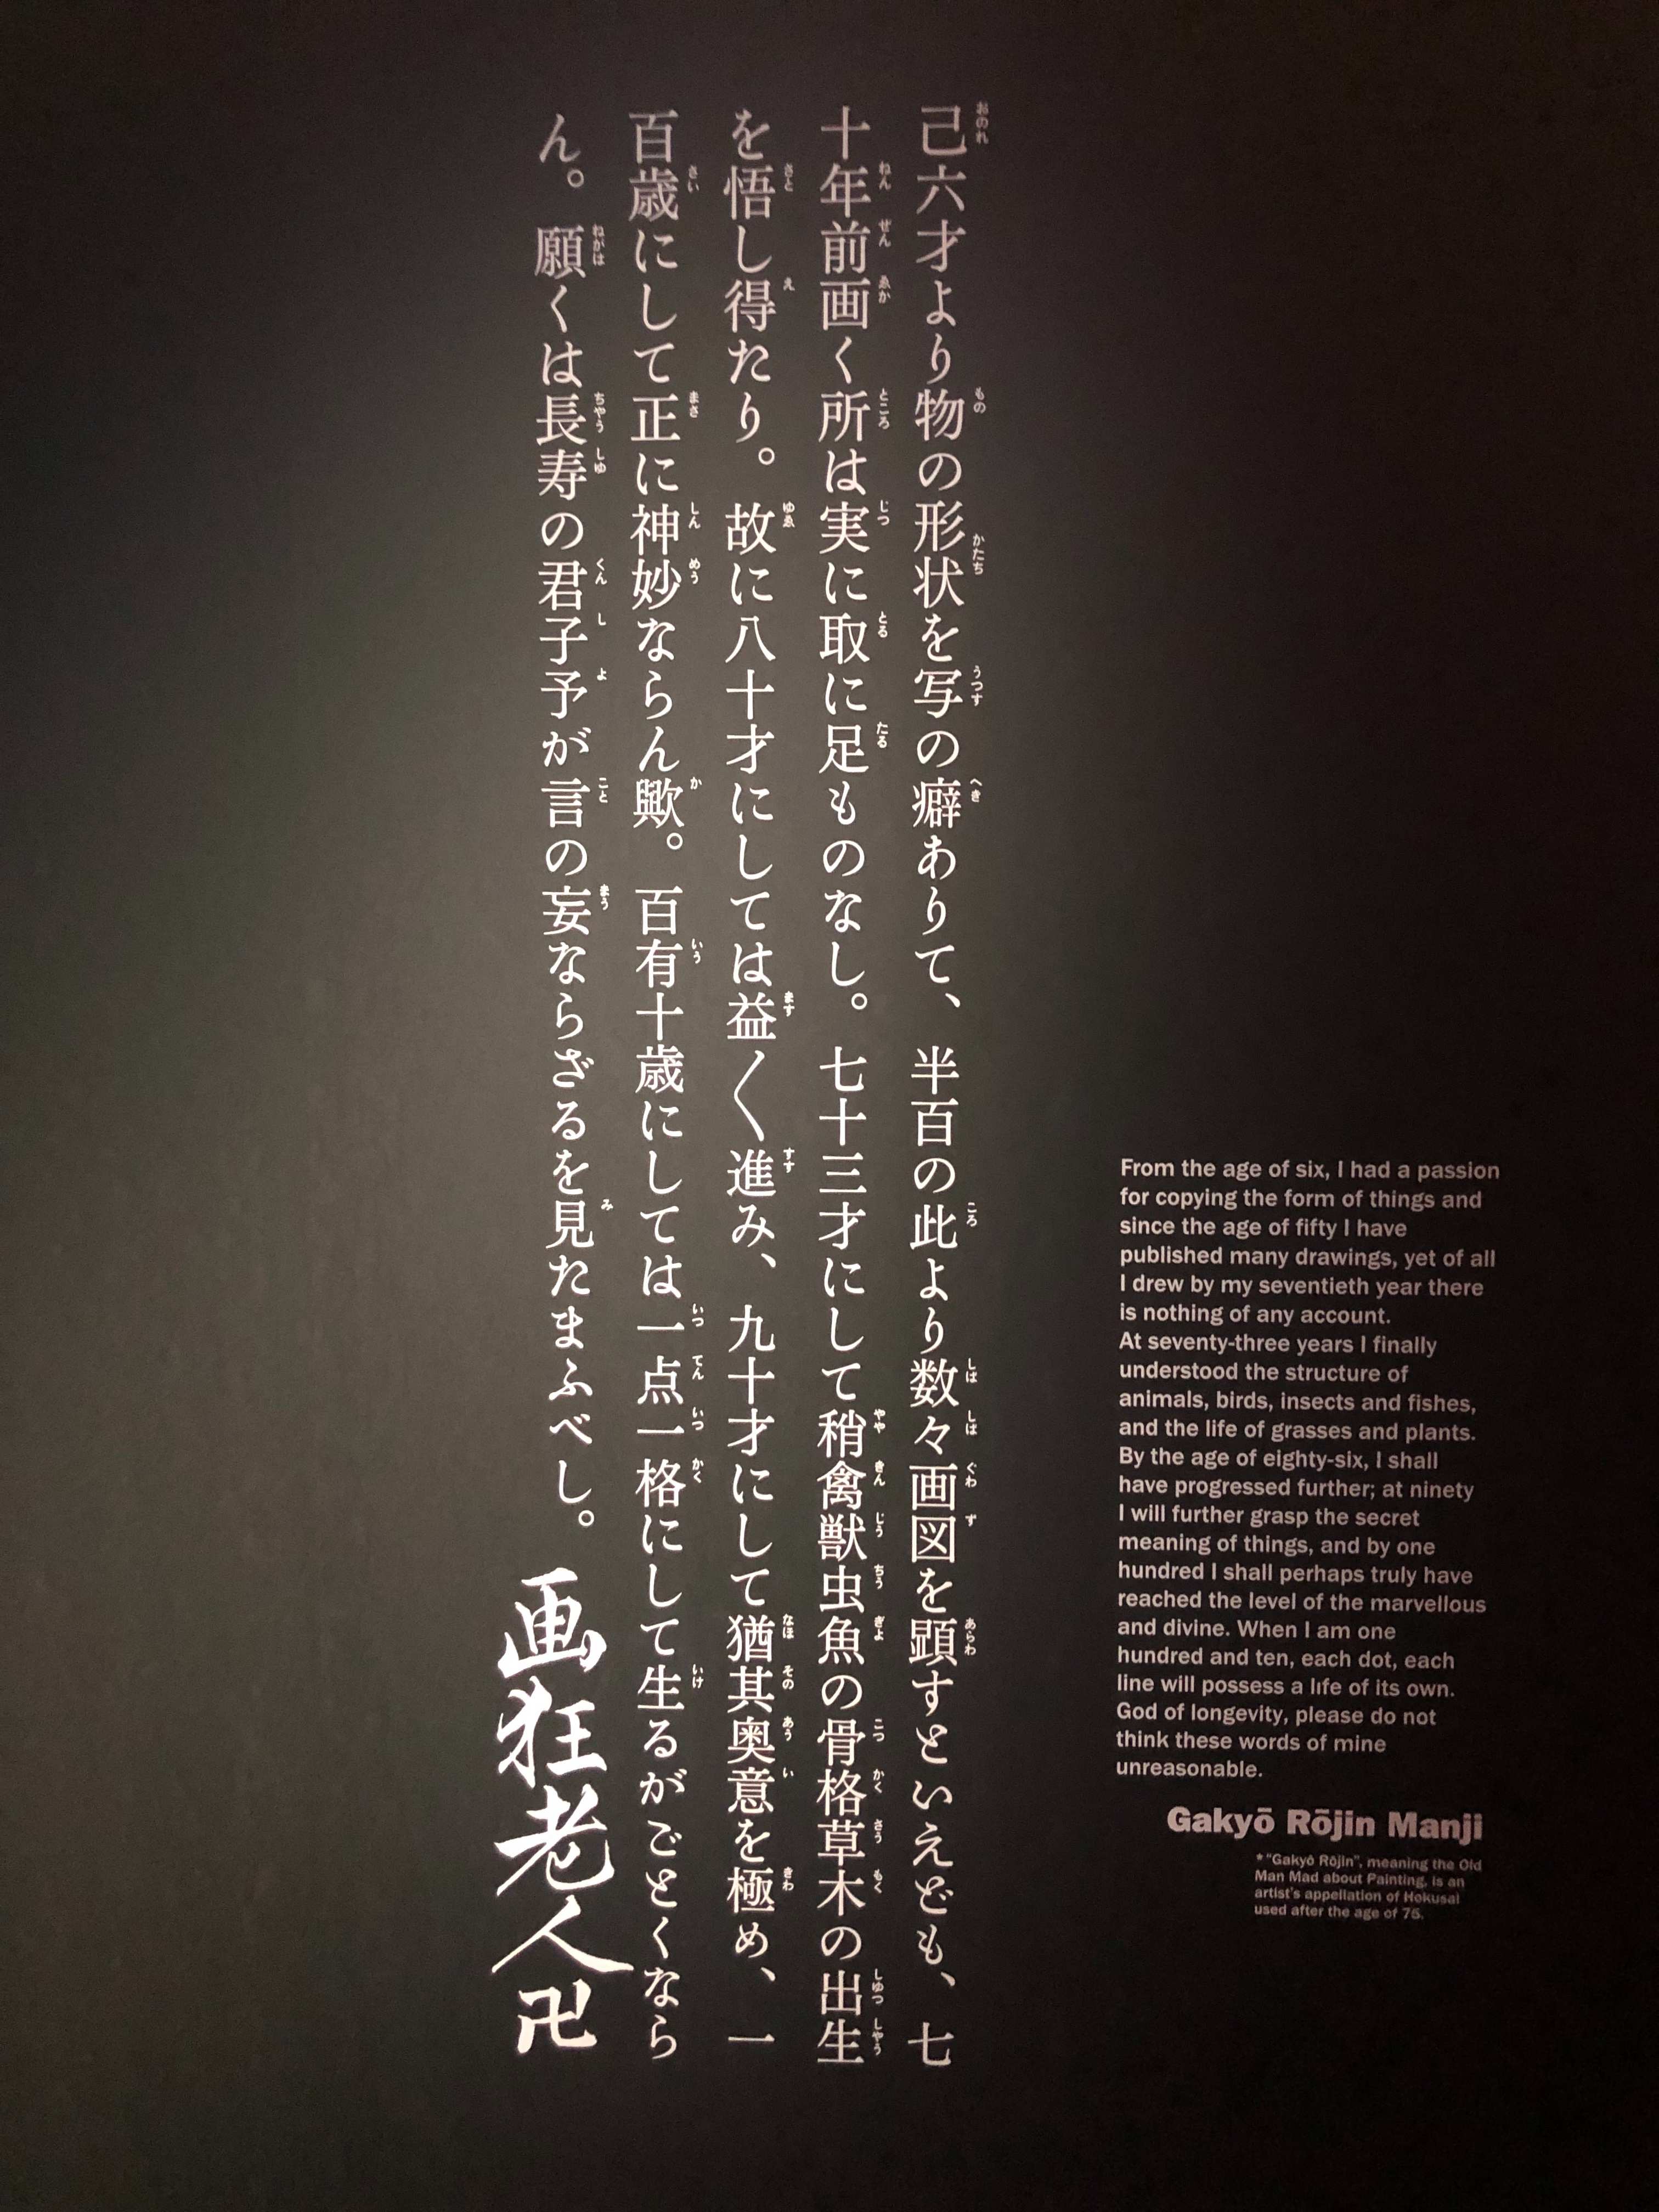 己六才より物の形状を写の癖ありて、半百の此より数々画図を顕すといえども、七
十年前画く所は実に取に足ものなし。七十三才にして稍禽獣虫魚の骨格草木の出生
を悟し得たり。故に八十才にしては益〱進み、九十才にして猶其奥意を極め、一
百歳にして正に神妙ならん歟。百有十歳にしては一点一格にして生るがごとくなら
ん。願くは長寿の君子予が言の妄ならざるを見たまふべし。
画狂老人卍
From the age of six, I had a passion
for copying the form of things and
since the age of fifty I have
published many drawings, yet of all
I drew by my seventieth year there
is nothing of any account.
At seventy-three years I finally
understood the structure of
animals, birds, insects and fishes,
and the life of grasses and plants.
By the age of eighty-six, I shall
have progressed further; at ninety
I will further grasp the secret
meaning of things, and by one
hundred I shall perhaps truly have
reached the level of the marvellous
and divine. When I am one
hundred and ten, each dot, each
line will possess a life of its own.
God of longevity, please do not
think these words of mine
unreasonable.
Gakyō Rōjin Manji
* "Gakyō Rōjin", meaning the Old
Man Mad about Painting, is an
artist's appellation of Hokusai
used after the age of 75.